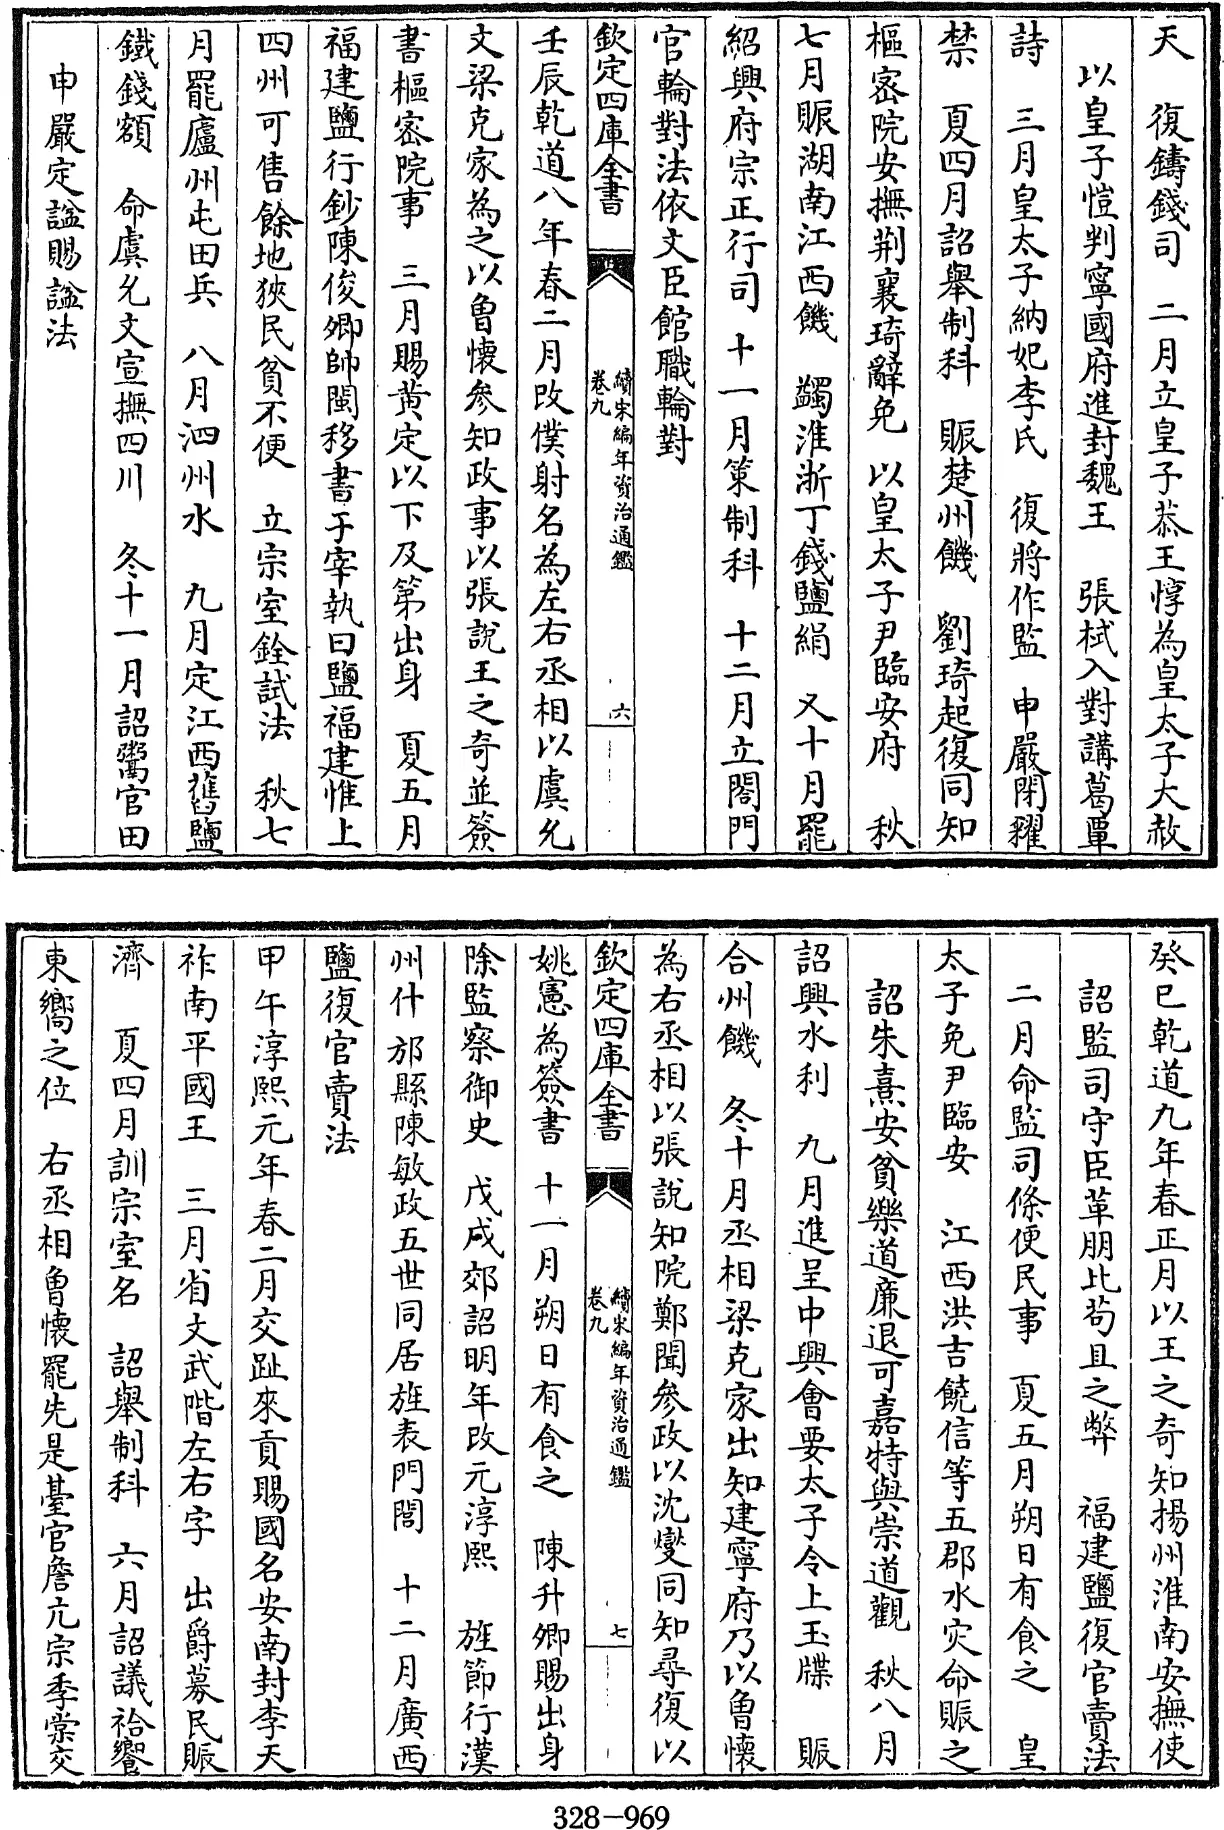 天　復鑄錢司　二月立皇子恭王惇為皇太子大赦
以皇子愷判寧國府進封魏王　張栻入對講葛覃
詩　三月皇太子納妃李氏　復將作監　申嚴閉糴
禁　夏四月詔舉制科　賑楚州饑　劉琦起復同知
樞密院安撫荆襄琦辭免　以皇太子尹臨安府　秋
七月賑湖南江西饑　蠲淮浙丁錢鹽絹　又十月罷
紹興府宗正行司　十一月策制科　十二月立閤門
官輪對法依文臣館職輪對
欽定四庫全書　續宋編年資治通鑑　卷九　六
壬辰乾道八年春二月改僕射名為左右丞相以虞允
文梁克家為之以曾懷參知政事以張說王之奇並簽
書樞密院事　三月賜黄定以下及第出身　夏五月
福建鹽行鈔陳俊卿帥閩移書于宰執曰鹽福建惟上
四州可售餘地狹民貧不便　立宗室銓試法　秋七
月罷廬州屯田兵　八月泗州水　九月定江西舊鹽
鐵錢額　命虞允文宣撫四川　冬十一月詔鬻官田
申嚴定諡賜諡法
癸巳乾道九年春正月以王之奇知揚州淮南安撫使
詔監司守臣革朋比苟且之弊　福建鹽復官賣法
二月命監司條便民事　夏五月朔日有食之　皇
太子免尹臨安　江西洪吉饒信等五郡水灾命賑之
詔朱熹安貧樂道廉退可嘉特與崇道觀　秋八月
詔興水利　九月進呈中興會要太子令上玉牒　賑
合州饑　冬十月丞相梁克家出知建寧府乃以曾懷
為右丞相以張說知院鄭聞參政以沈夔同知尋復以
欽定四庫全書　續宋編年資治通鑑　卷九　七
姚憲為簽書　十一月朔日有食之　陳升卿賜出身
除監察御史　戊戌郊詔明年改元淳熙　旌節行漢
州什邡縣陳敏政五世同居旌表門閭　十二月廣西
鹽復官賣法
甲午淳熙元年春二月交趾來貢賜國名安南封李天
祚南平國王　三月省文武階左右字　出爵募民賑
濟　夏四月訓宗室名　詔舉制科　六月詔議祫饗
東嚮之位　右丞相曾懷罷先是臺官詹亢宗季棠交
328-969